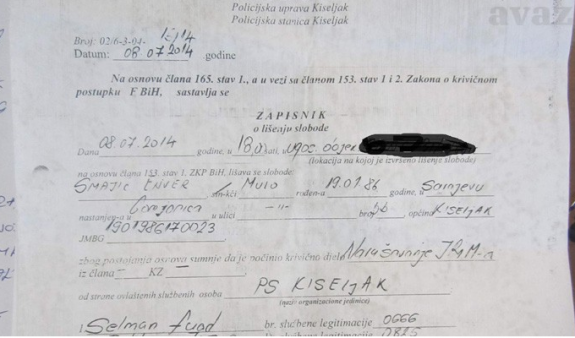 avaz
Policijska uprava Kiseljak
Policijska stanica Kiseljak
Broj: 02/6-3-04-
Datum: 08.07.2014 godine
Na osnovu člana 165. stav 1., a u vezi sa članom 153. stav 1 i 2. Zakona o krivičnom
postupku F BiH, sastavlja se
ZAPISNIK
o lišenju slobode
Dana 08.07.2014 godine, u 18,00 sati, u ugos. objek
(lokacija na kojoj je izvršeno lišenje slobode)
na osnovu člana 153. stav 1. ZKP BiH, lišava se slobode:
SMAJIĆ ENVER sin-kći Mujo rođen-a 19.01.86 godine, u Sarajevu
nastanjen-a u u ulici -11- broj bb općina KISELJAK
JMBG 1901986170023
zbog postojanja osnova sumnje da je počinio krivično djelo Narušavanje JRM-a
iz člana — KZ —
od strane ovlaštenih službenih osoba PS KISELJAK
(naziv organizacione jedinice)
1 Selman fuad br. službene legitimacije 0666
br. službene legitimacije